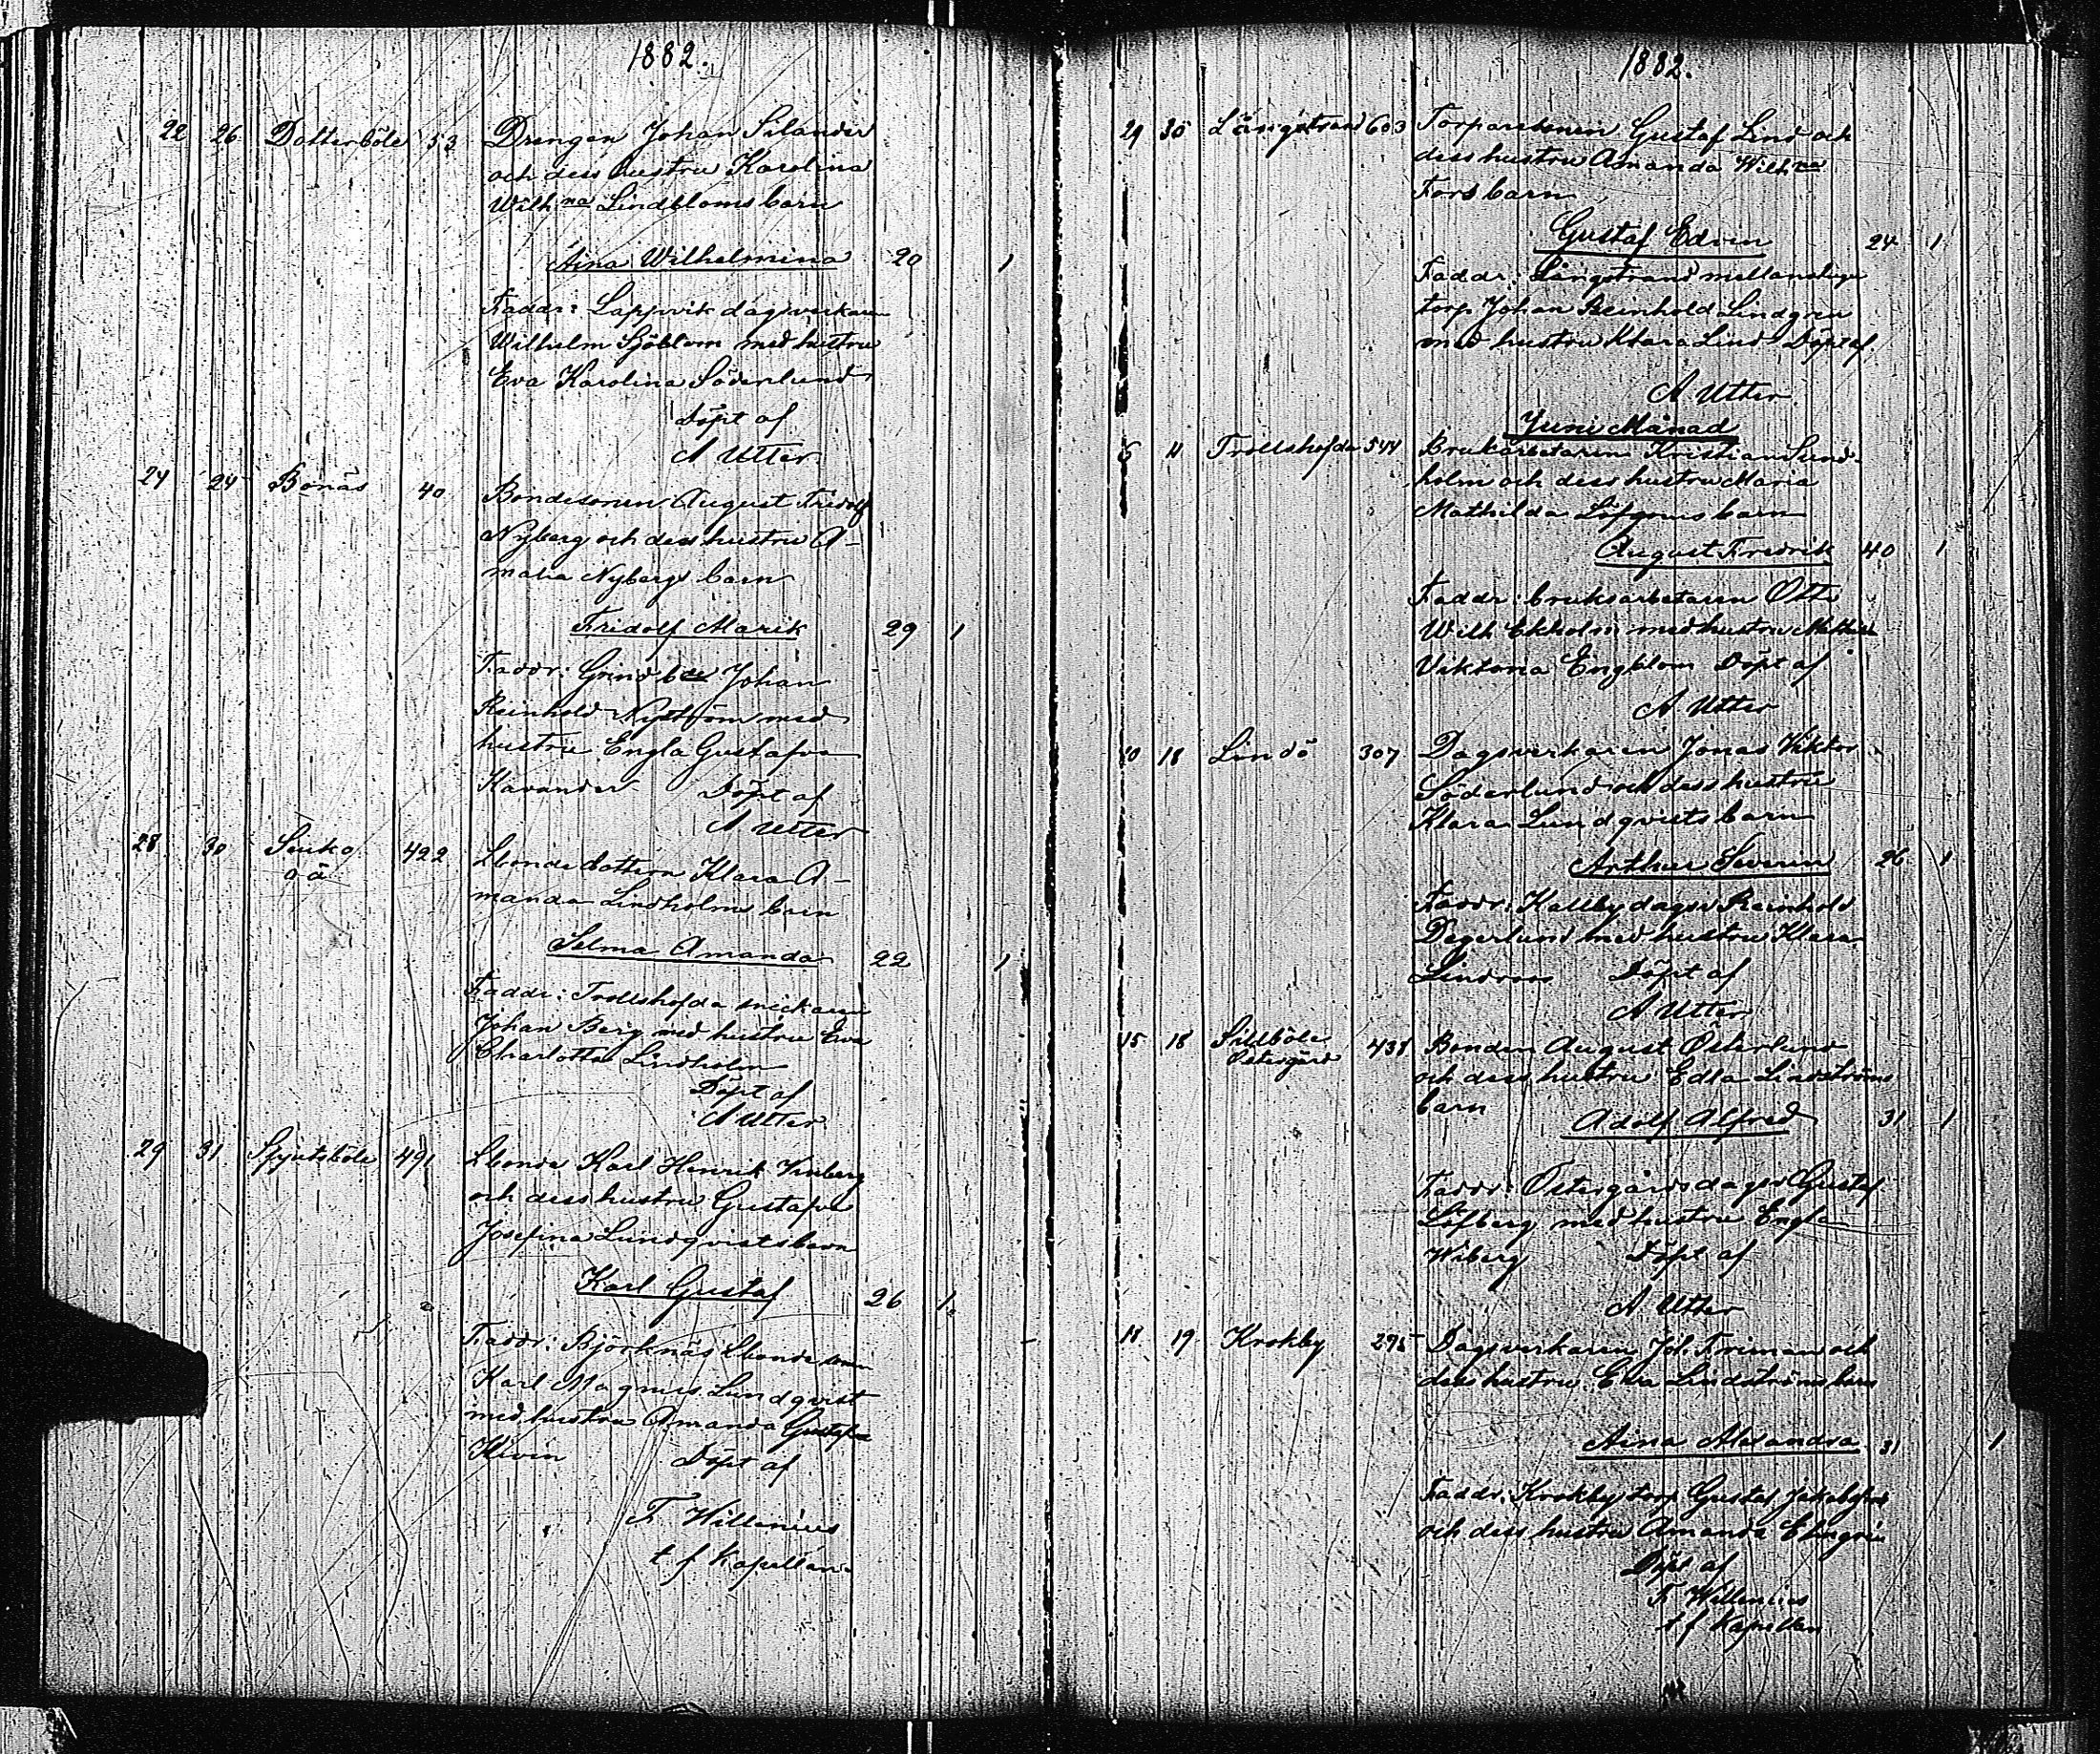 1882.
22 26 Dotterböle 53 Drengen Johan Silander
och dess hustru Karolina
Wilh:na Lindbloms barn
Aina Wilhelmina 20 1
Faddr: Lappvik dagsverkaren
Wilhelm Sjöblom med hustru
Eva Karolina Söderlund
Döpt af
A Utter
24 24 Bonäs 40 Bondesonen August Fridolf
Nyberg och dess hustru A-
malia Nybergs barn
Fridolf Marik 29 1
Faddr: Johan
Reinhold Nyström med
hustru Engla Gustafva
Döpt af
A Utter
28 30 422 Lbonde dottern Klara A-
manda Lindholms barn
Selma Amanda 22 1
Faddr: Trollshofda snickaren
Johan Berg med hustru Eva
Charlotta Lindholm
Döpt af
A Utter
29 31 Spjutsböle 491 Lbonde Karl Henrik
och dess hustru Gustafva
Josefina Lundqvists barn
Karl Gustaf 26 1
Faddr: Björknäs Lbonde son
Karl Magnus Lundqvist
med hustru Amanda Gustafva
Döpt af
F Willenius
t f Kapellan
1882.
29 30 Långstrand 603 Torparesonen Gustaf Lind och
dess hustru Amanda Wilh:na
Fors barn
Gustaf Edvin 24 1
Faddr: Långstrand
torp. Johan Reinhold Lindgren
med hustru Klara Lind Döpt af
A Utter
Juni Månad
5 11 Trollshofda 544 Bruksarbetaren Kristian Lund-
holm och dess hustru Maria
Mathilda Löfgrens barn
August Fredrik 40 1
Faddr: bruksarbetaren Otto
Wilh Ekholm med hustru
Viktoria Engblom Döpt af
A Utter
10 18 Lindö 307 Dagsverkaren Jonas Viktor
Söderlund och dess hustru
Klara Lundqvists barn
Arthur Severin 26 1
Faddr: Kallby dagsv Reinhold
Degerlund med hustru Klara
Lindroos Döpt af
A Utter
15 18 Sildböle
Östergård 438 Bonden August Österlund
och dess hustru Edla Lindströms
barn
Adolf Alfred 31 1
Faddr: Östergårds dagsv Gustaf
Löfberg med hustru Engla
Wiberg Döpt af
A Utter
18 19 Krokby 295 Dagsverkaren Joh. Friman och
dess hustru Eva Lindströms barn
Aina Alexandra 31 1
Faddr: Krokby torp Gustaf
och dess hustru Amanda
Döpt af
F Willenius
t f Kapellan